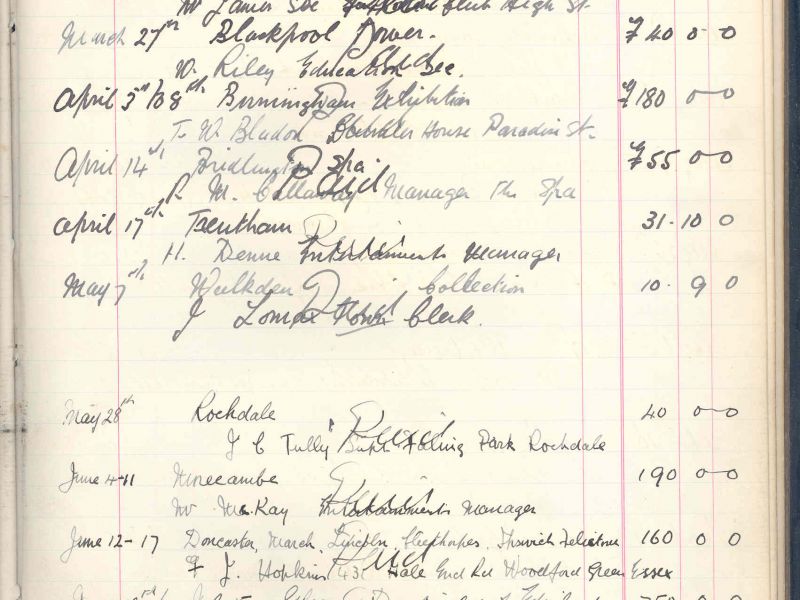 Mr James See Club High St.
March 27th Blackpool Tower. £40 0 0
W. Riley Education Sec. Paid
April 3rd to 8th Birmingham Exhibition £180 0 0
To W Bladon House Paradise St. Paid
April 14th Bridlington Spa £55 0 0
R. M. Callaway Manager The Spa Paid
April 17th Trentham 31. 10 0
H. Denne Entertainments Manager Paid
May 7th Walkden Collection 10. 9 0
J Lomax Clerk. Paid
May 28th Rochdale 40 0 0
J C Tully Supt Falinge Park Rochdale Paid
June 4-11 Morecambe 190 0 0
Mr McKay Entertainments Manager Paid
June 12-17 Doncaster, March, Lincoln, Cleethorpes, Ipswich Felixstowe 160 0 0
F J. Hopkins 431 Hale End Rd Woodford Green Essex Paid